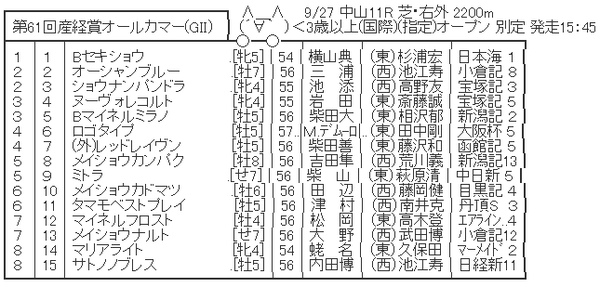 第61回産経賞オールカマー(GII) (´∀｀)< 9/27 中山11R 芝・右外 2200m
3歳以上(国際)(指定)オープン 別定 発走15:45
1 1 Bセキショウ .[牝5] 54 横山典 (東)杉浦宏 日本海 1
2 2 オーシャンブルー .[牡7] 56 三浦 (西)池江寿 小倉記 8
2 3 ショウナンパンドラ .[牝4] 55 池添 (西)高野友 宝塚記 3
3 4 ヌーヴォレコルト .[牝4] 55 岩田 (東)斎藤誠 宝塚記 5
3 5 Bマイネルミラノ .[牡5] 56 柴田大 (東)相沢郁 新潟記 2
4 6 ロゴタイプ .[牡5] 57.. M.デムーロ.. (東)田中剛 大阪杯 5
4 7 (外)レッドレイヴン .[牡5] 56 柴田善 (東)藤沢和 函館記 5
5 8 メイショウカンパク .[牡8] 56 吉田隼 (西)荒川義 新潟記13
5 9 ミトラ .[せ7] 56 柴山 (東)萩原清 中日新 5
6 10 メイショウカドマツ .[牡6] 56 田辺 (西)藤岡健 目黒記 4
6 11 タマモベストプレイ .[牡5] 56 津村 (西)南井克 丹頂S 3
7 12 マイネルフロスト .[牡4] 56 松岡 (東)高木登 エアライン. 4
7 13 メイショウナルト .[せ7] 56 大野 (西)武田博 小倉記12
8 14 マリアライト .[牝4] 54 蛯名 (東)久保田 マーメイド 2
8 15 サトノノブレス .[牡5] 56 内田博 (西)池江寿 日経新11